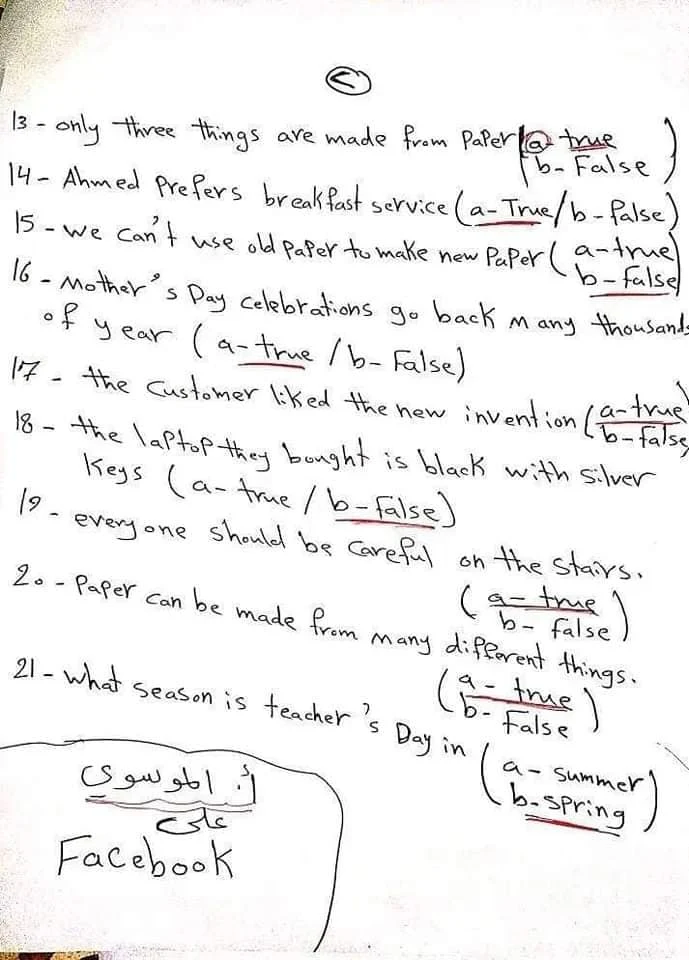 <
13 - only three things are made from Paper (a- true
b- False)
14 - Ahmed Prefers breakfast service (a- True / b- false)
15 - we can't use old paper to make new Paper ( a- true
b- false)
16 - Mother's Day celebrations go back many thousands
of year ( a- true / b- False)
17 - the customer liked the new invention ( a- true
b- false
18 - the laptop they bought is black with silver
Keys ( a- true / b- false)
19 - everyone should be careful on the stairs.
( a- true
b- false )
20 - Paper can be made from many different things.
( a- true
b- False )
21 - what season is teacher's Day in ( a- summer
b- spring )
أ. الموسوي
على
Facebook